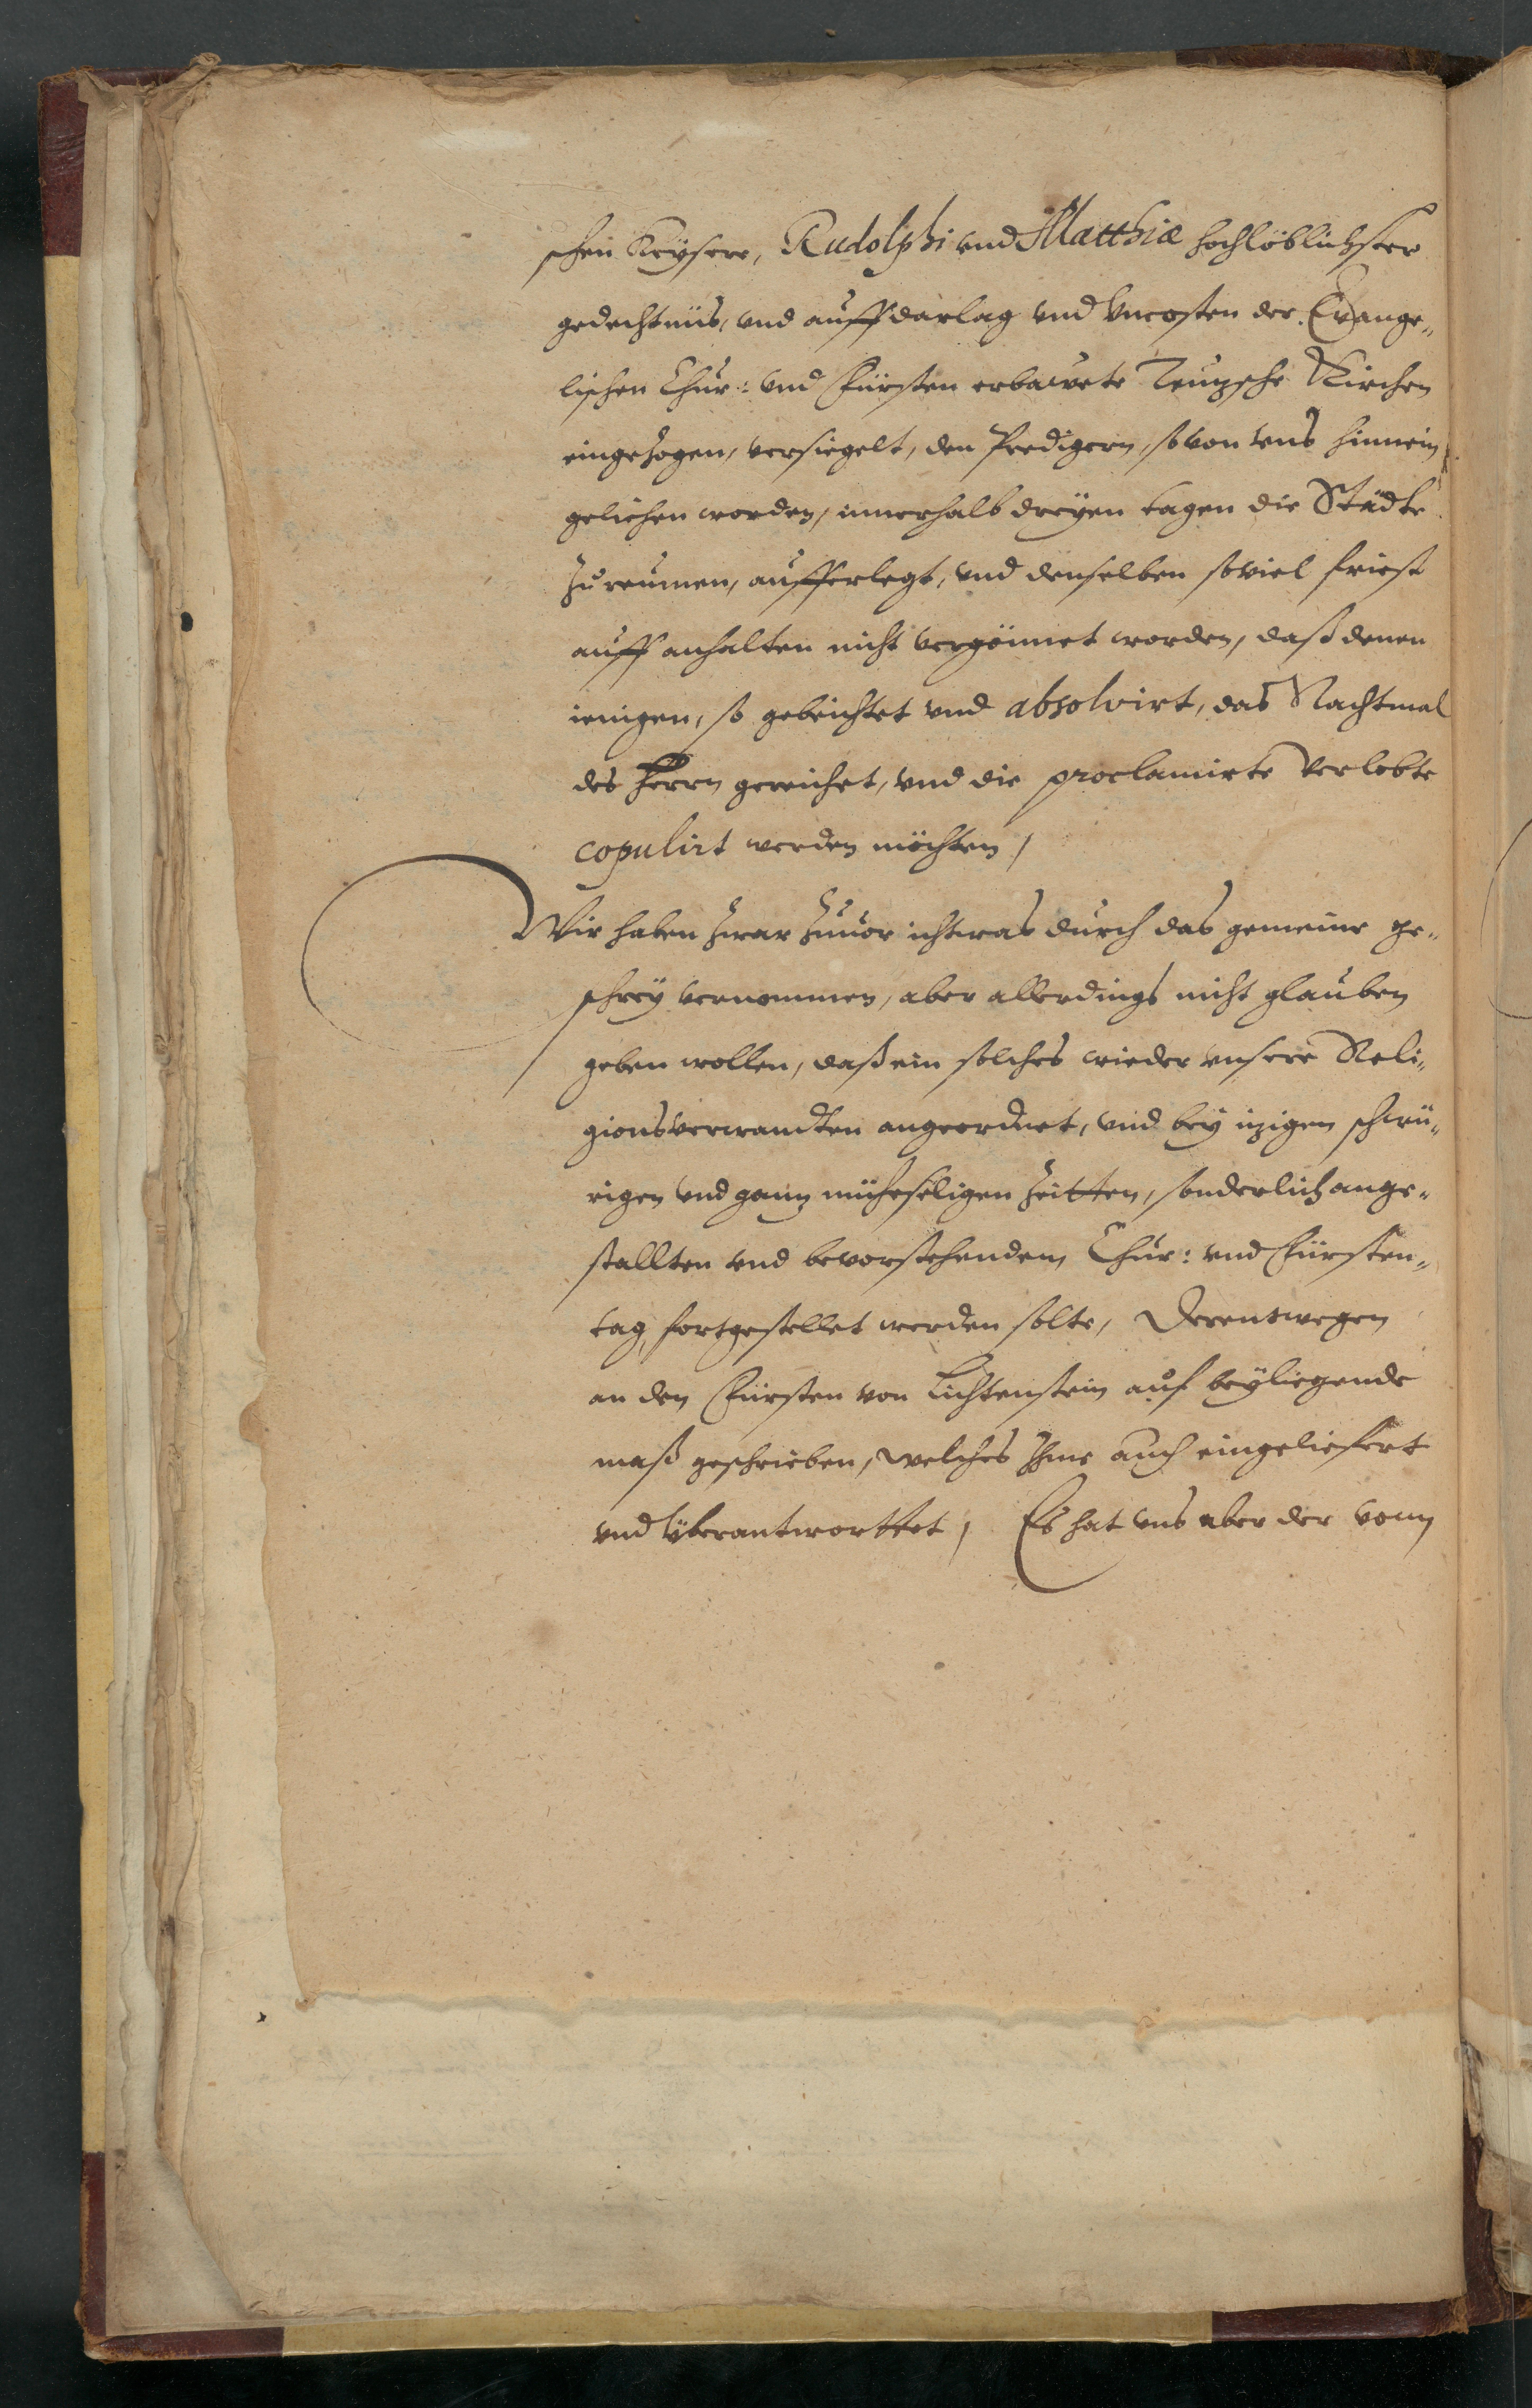 schen Keÿsere, Rudolphi vnd Matthiæ hochlöblichster
gedechtnüs, vnd auff darlag vnd Vncosten der Evange„
lischen Chur: vnd Fürsten erbawete Teuzsche Kirchen
eingezogen, versiegelt, den Predigern, so von vns hinnein
geliehen worden, innerhalb dreyen tagen die Städte
zu reumen, aufferlegt, vnd denselben soviel friest
auff anhalten nicht vergönnet worden, daß denen
ienigen, so gebeichtet vnd absolvirt, das Nachtmal
des Herrn gereichet, vnd die proclamirte Verlobte
copulirt werden möchten,
Wir haben zwar zuuor ichtwas durch das gemeine ge„
schreÿ vernommen, aber allerdings nicht glauben
geben wollen, daß ein solches wieder vnsere Reli„
gionsverwandten angeordnet, vnd beÿ izigen schwü„
rigen vnd ganz müheseligen Zeitten, sonderlich ange„
stallten vnd bevorstehendem Chur: vnd Fürsten„
tag, fortgestellet werden solte, Derentwegen
an den Fürsten von Lichtenstein auf beÿliegende
maß geschrieben, welches Ihme auch eingeliefert
vnd vberantworttet, Es hat vns aber der vonn